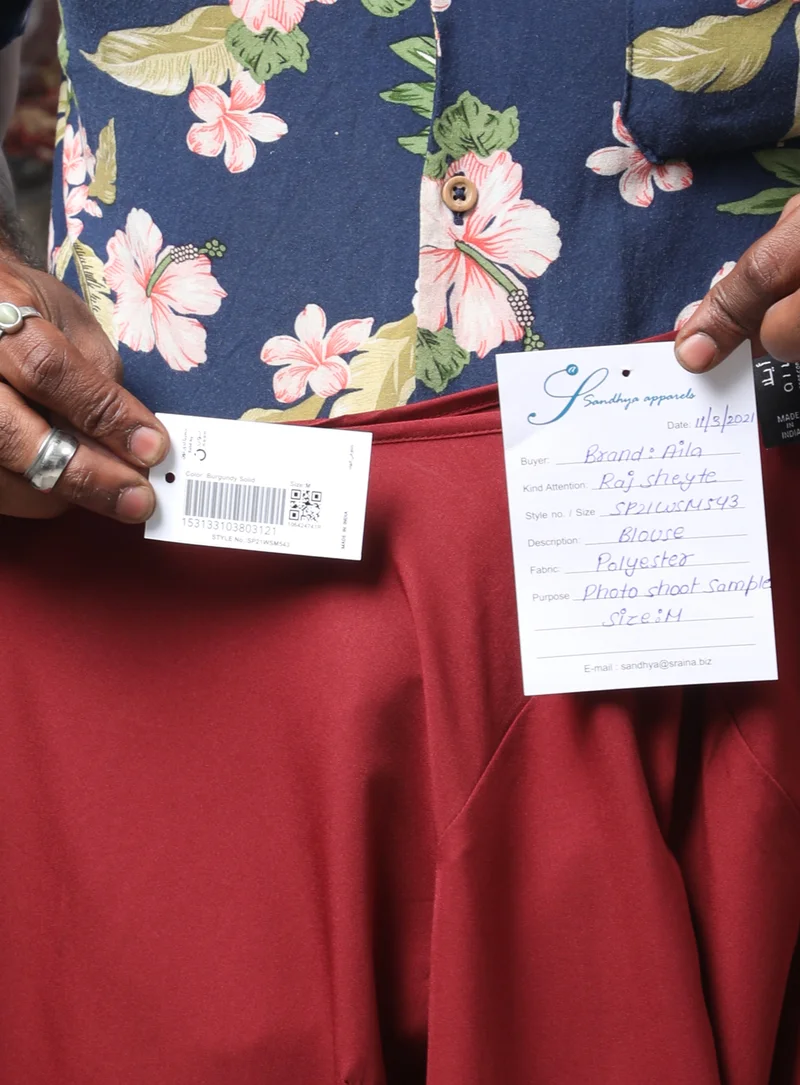 Color: Burgundy Solid
Size: M
153133103803121
STYLE No. SP21WSM543
MADE IN INDIA
Sandhya apparels
Date: 11/3/2021
Buyer: Brand: Aila
Kind Attention: Raj Sheyte
Style no. / Size SP21WSM543
Description: Blouse
Fabric: Polyester
Purpose Photo shoot Sample
Size: M
E-mail : sandhya@sraina.biz
MADE
IN
INDIA